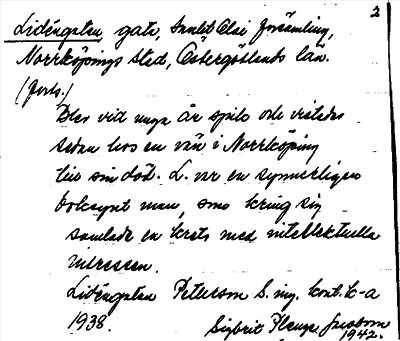 2
Lidéngatan, gata, Sankt Olai församling,
Norrköpings stad, Östergötlands län.
(forts.)
Blev vid unga år sjuk och vistades
sedan hos en vän i Norrköping
till sin död. L. var en synnerligen
boksynt man, som kring sig
samlade en krets med intellektuella
intressen.
Lidéngatan Peterson S. ing. kont. k-a
1938.
Sigbrit Plenge Jacobson
1942.